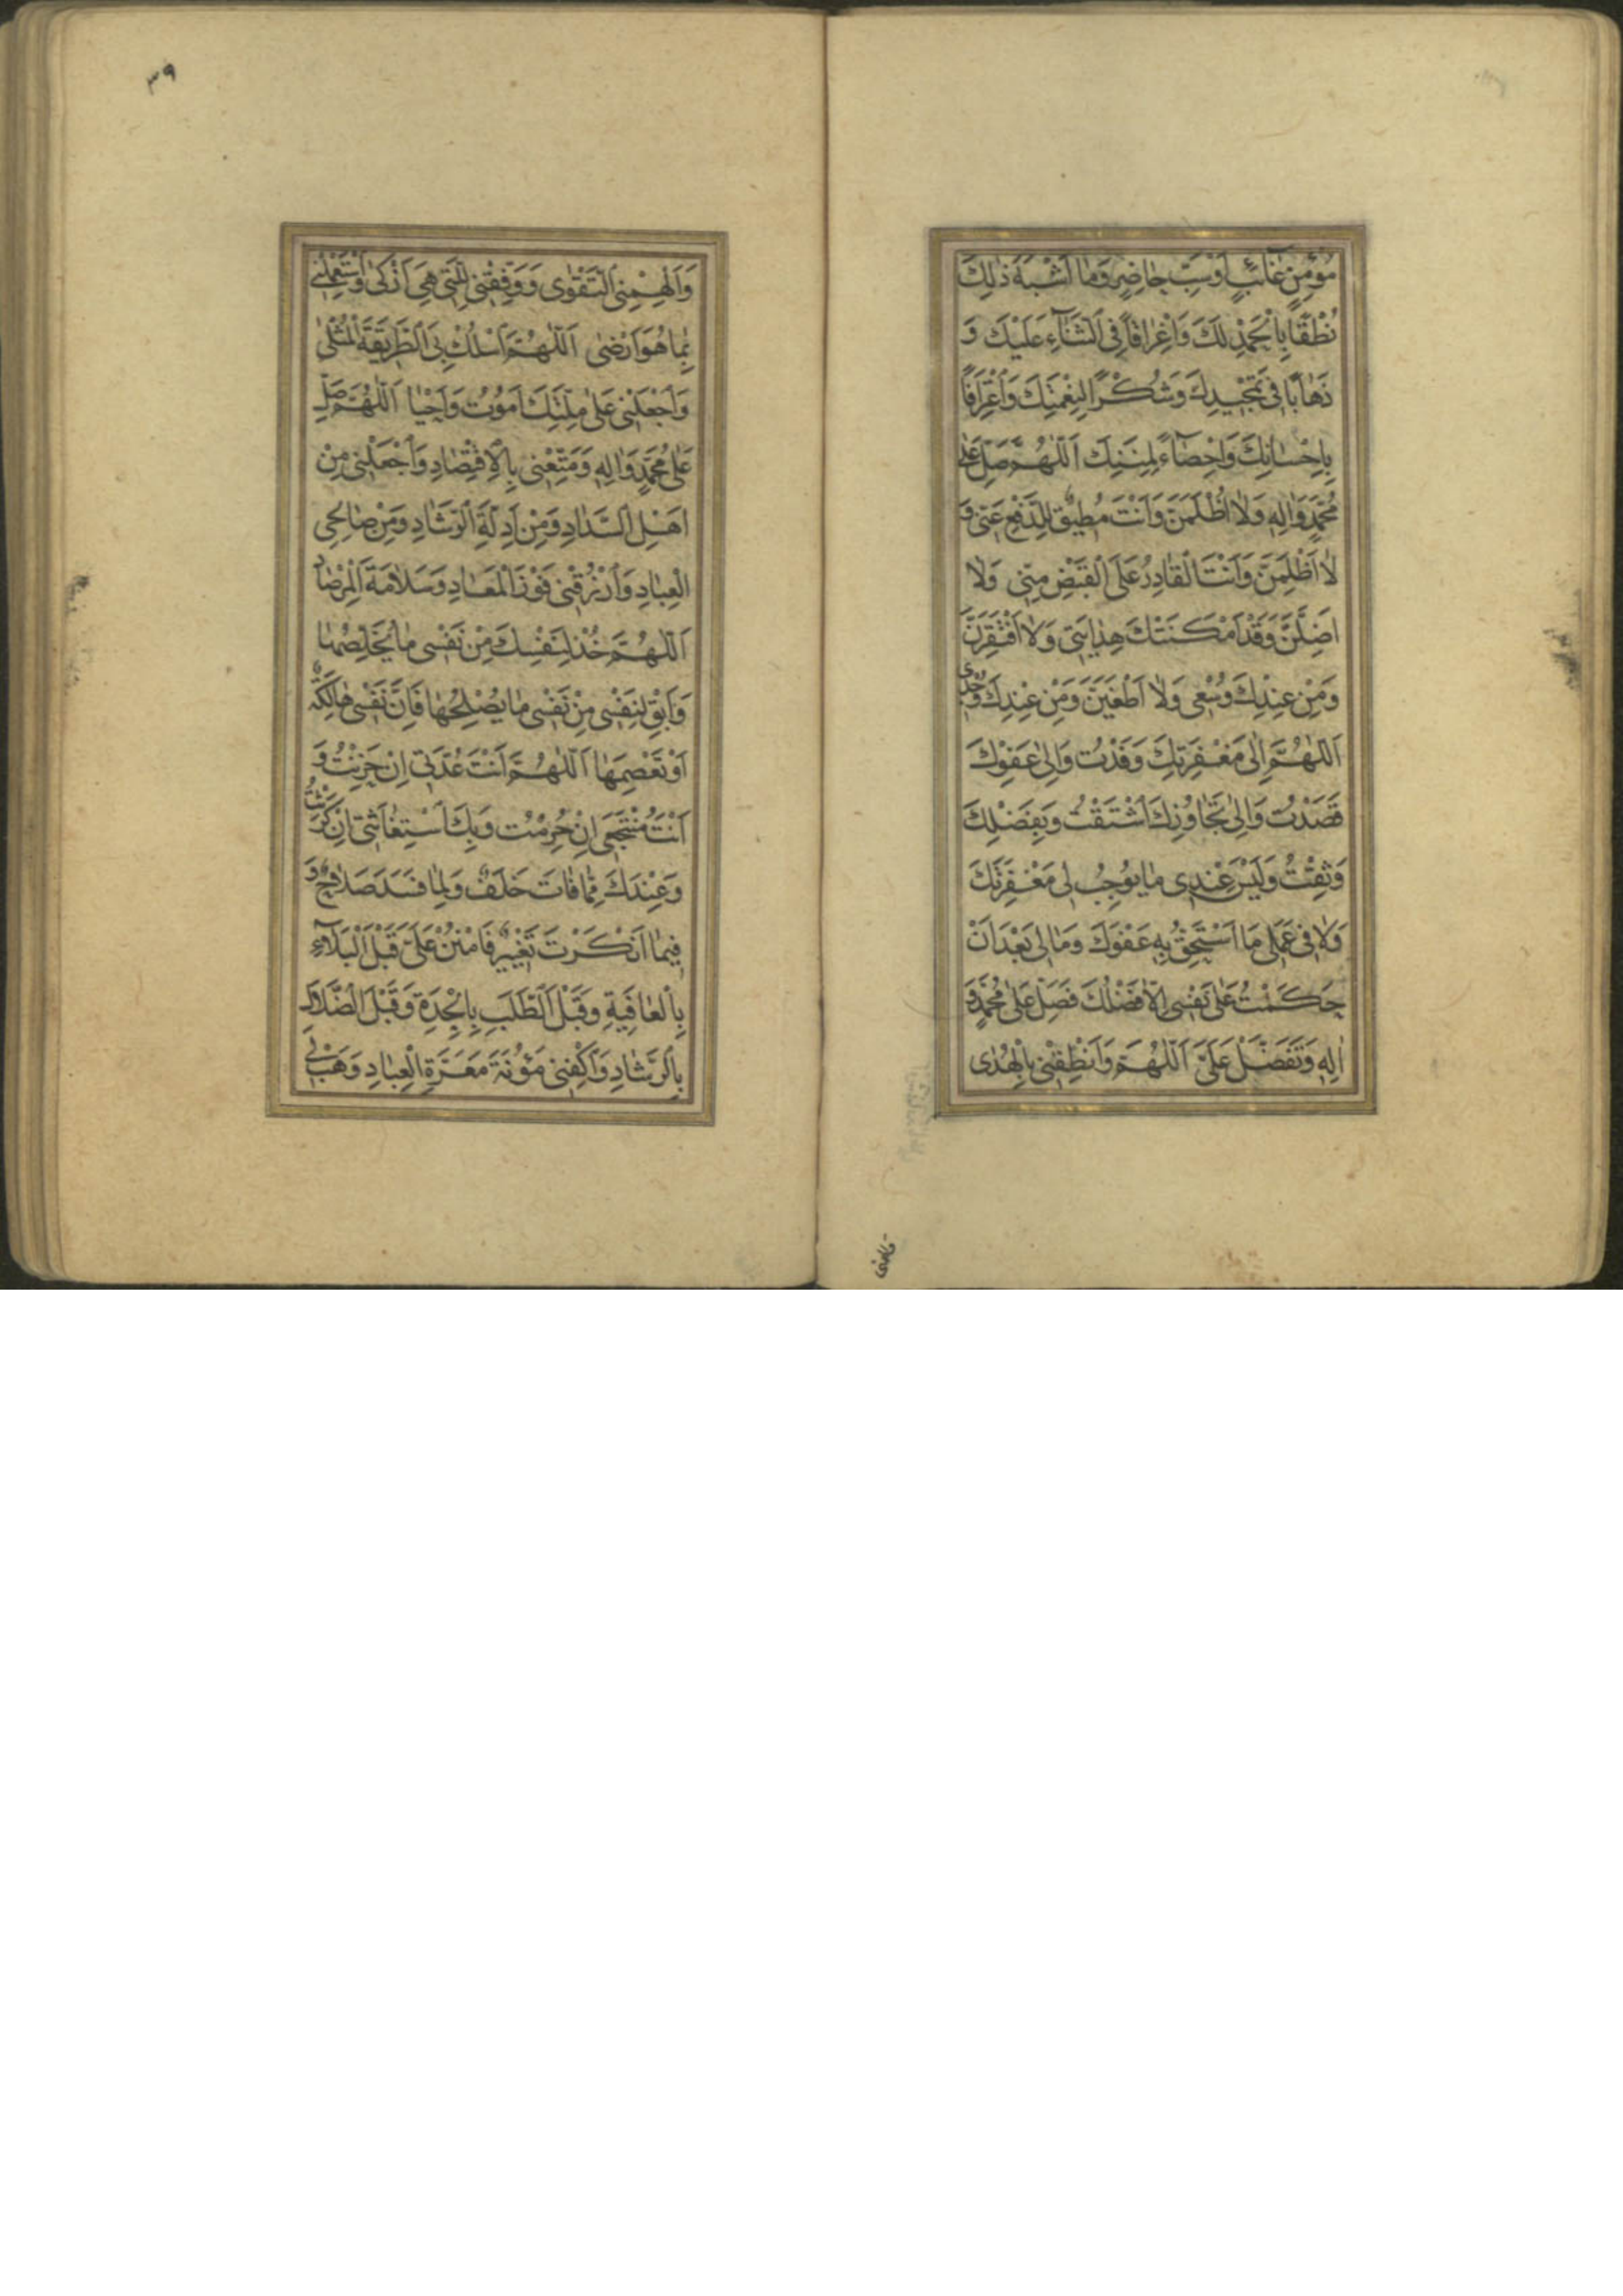 مُؤْمِنٍ غَائِبٍ اَوْ سَبِّ حَاضِرٍ وَمَا اَشْبَهَ ذٰلِكَ
نُطْقًا بِالْحَمْدِ لَكَ وَاِغْرَاقًا فِي الثَّنَآءِ عَلَيْكَ وَ
ذَهَابًا فِي تَمْجِيدِكَ وَشُكْرًا لِنِعْمَتِكَ وَاعْتِرَافًا
بِاِحْسَانِكَ وَاِحْصَآءً لِمِنَنِكَ اَللّٰهُمَّ صَلِّ عَلٰى
مُحَمَّدٍ وَاٰلِهِ وَلَا اُظْلَمَنَّ وَاَنْتَ مُطِيقٌ لِلدَّفْعِ عَنِّي وَ
لَا اَظْلِمَنَّ وَاَنْتَ الْقَادِرُ عَلَى الْقَبْضِ مِنِّي وَلَا
اَضِلَّنَّ وَقَدْ اَمْكَنَتْكَ هِدَايَتِي وَلَا اَفْتَقِرَنَّ
وَمِنْ عِنْدِكَ وُسْعِي وَلَا اَطْغَيَنَّ وَمِنْ عِنْدِكَ وُجْدِي
اَللّٰهُمَّ اِلٰى مَغْفِرَتِكَ وَفَدْتُ وَاِلٰى عَفْوِكَ
قَصَدْتُ وَاِلٰى تَجَاوُزِكَ اشْتَقْتُ وَبِفَضْلِكَ
وَثِقْتُ وَلَيْسَ عِنْدِي مَا يُوجِبُ لِي مَغْفِرَتَكَ
وَلَا فِي عَمَلِي مَا اَسْتَحِقُّ بِهِ عَفْوَكَ وَمَا لِي بَعْدَ اَنْ
حَكَمْتُ عَلٰى نَفْسِي اِلَّا فَضْلُكَ فَصَلِّ عَلٰى مُحَمَّدٍ وَ
اٰلِهِ وَتَفَضَّلْ عَلَيَّ اَللّٰهُمَّ وَاَنْطِقْنِي بِالْهُدٰى
٣٩
وَاَلْهِمْنِي التَّقْوٰى وَوَفِّقْنِي لِلَّتِي هِيَ اَزْكٰى وَاسْتَعْمِلْنِي
بِمَا هُوَ اَرْضٰى اَللّٰهُمَّ اسْلُكْ بِيَ الطَّرِيقَةَ الْمُثْلٰى
وَاجْعَلْنِي عَلٰى مِلَّتِكَ اَمُوتُ وَاَحْيَا اَللّٰهُمَّ صَلِّ
عَلٰى مُحَمَّدٍ وَاٰلِهِ وَمَتِّعْنِي بِالْاِقْتِصَادِ وَاجْعَلْنِي مِنْ
اَهْلِ السَّدَادِ وَمِنْ اَدِلَّةِ الرَّشَادِ وَمِنْ صَالِحِي
الْعِبَادِ وَارْزُقْنِي فَوْزَ الْمَعَادِ وَسَلَامَةَ الْمِرْصَادِ
اَللّٰهُمَّ خُذْ لِنَفْسِكَ مِنْ نَفْسِي مَا يُخَلِّصُهَا
وَاَبْقِ لِنَفْسِي مِنْ نَفْسِي مَا يُصْلِحُهَا فَاِنَّ نَفْسِي هَالِكَةٌ
اَوْ تَعْصِمَهَا اَللّٰهُمَّ اَنْتَ عُدَّتِي اِنْ حَزِنْتُ وَ
اَنْتَ مُنْتَجَعِي اِنْ حُرِمْتُ وَبِكَ اسْتِغَاثَتِي اِنْ كَرِثْتُ
وَعِنْدَكَ مِمَّا فَاتَ خَلَفٌ وَلِمَا فَسَدَ صَلَاحٌ وَ
فِيمَا اَنْكَرْتَ تَغْيِيرٌ فَامْنُنْ عَلَيَّ قَبْلَ الْبَلَآءِ
بِالْعَافِيَةِ وَقَبْلَ الطَّلَبِ بِالْجِدَةِ وَقَبْلَ الضَّلَالِ
بِالرَّشَادِ وَاكْفِنِي مَؤُنَةَ مَعَرَّةِ الْعِبَادِ وَهَبْ لِي